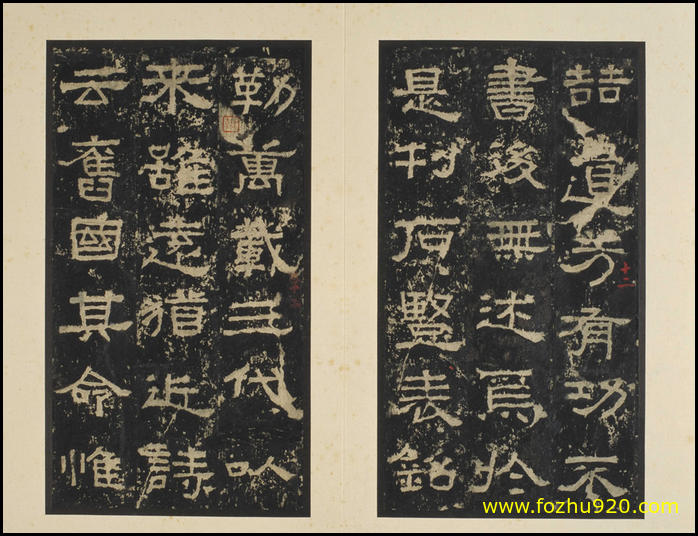 喆遺芳有功不
書後無述焉於
是刊石豎表銘
勒萬載三代以
来雖遠猶近詩
云舊國其命惟
十二
www.fozhu920.com